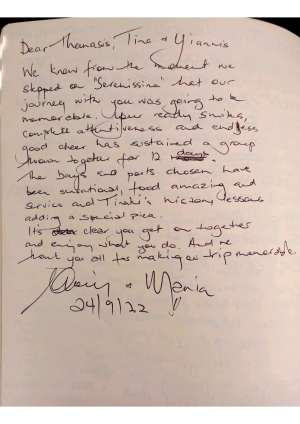 Dear Thanasis, Tina & Yiannis
We knew from the moment we
stepped on "Serenissima" that our
journey with you was going to be
memorable. Your ready smiles,
complete attentiveness and endless
good cheer has sustained a group
thrown together for 12 days.
The bays and ports chosen have
been sensational, food amazing and
service and Tina's history lessons
adding a special
It's clear you get on together
and enjoy what you do. And we
thank you all for making our trip memorable.
& Maria
24/9/22